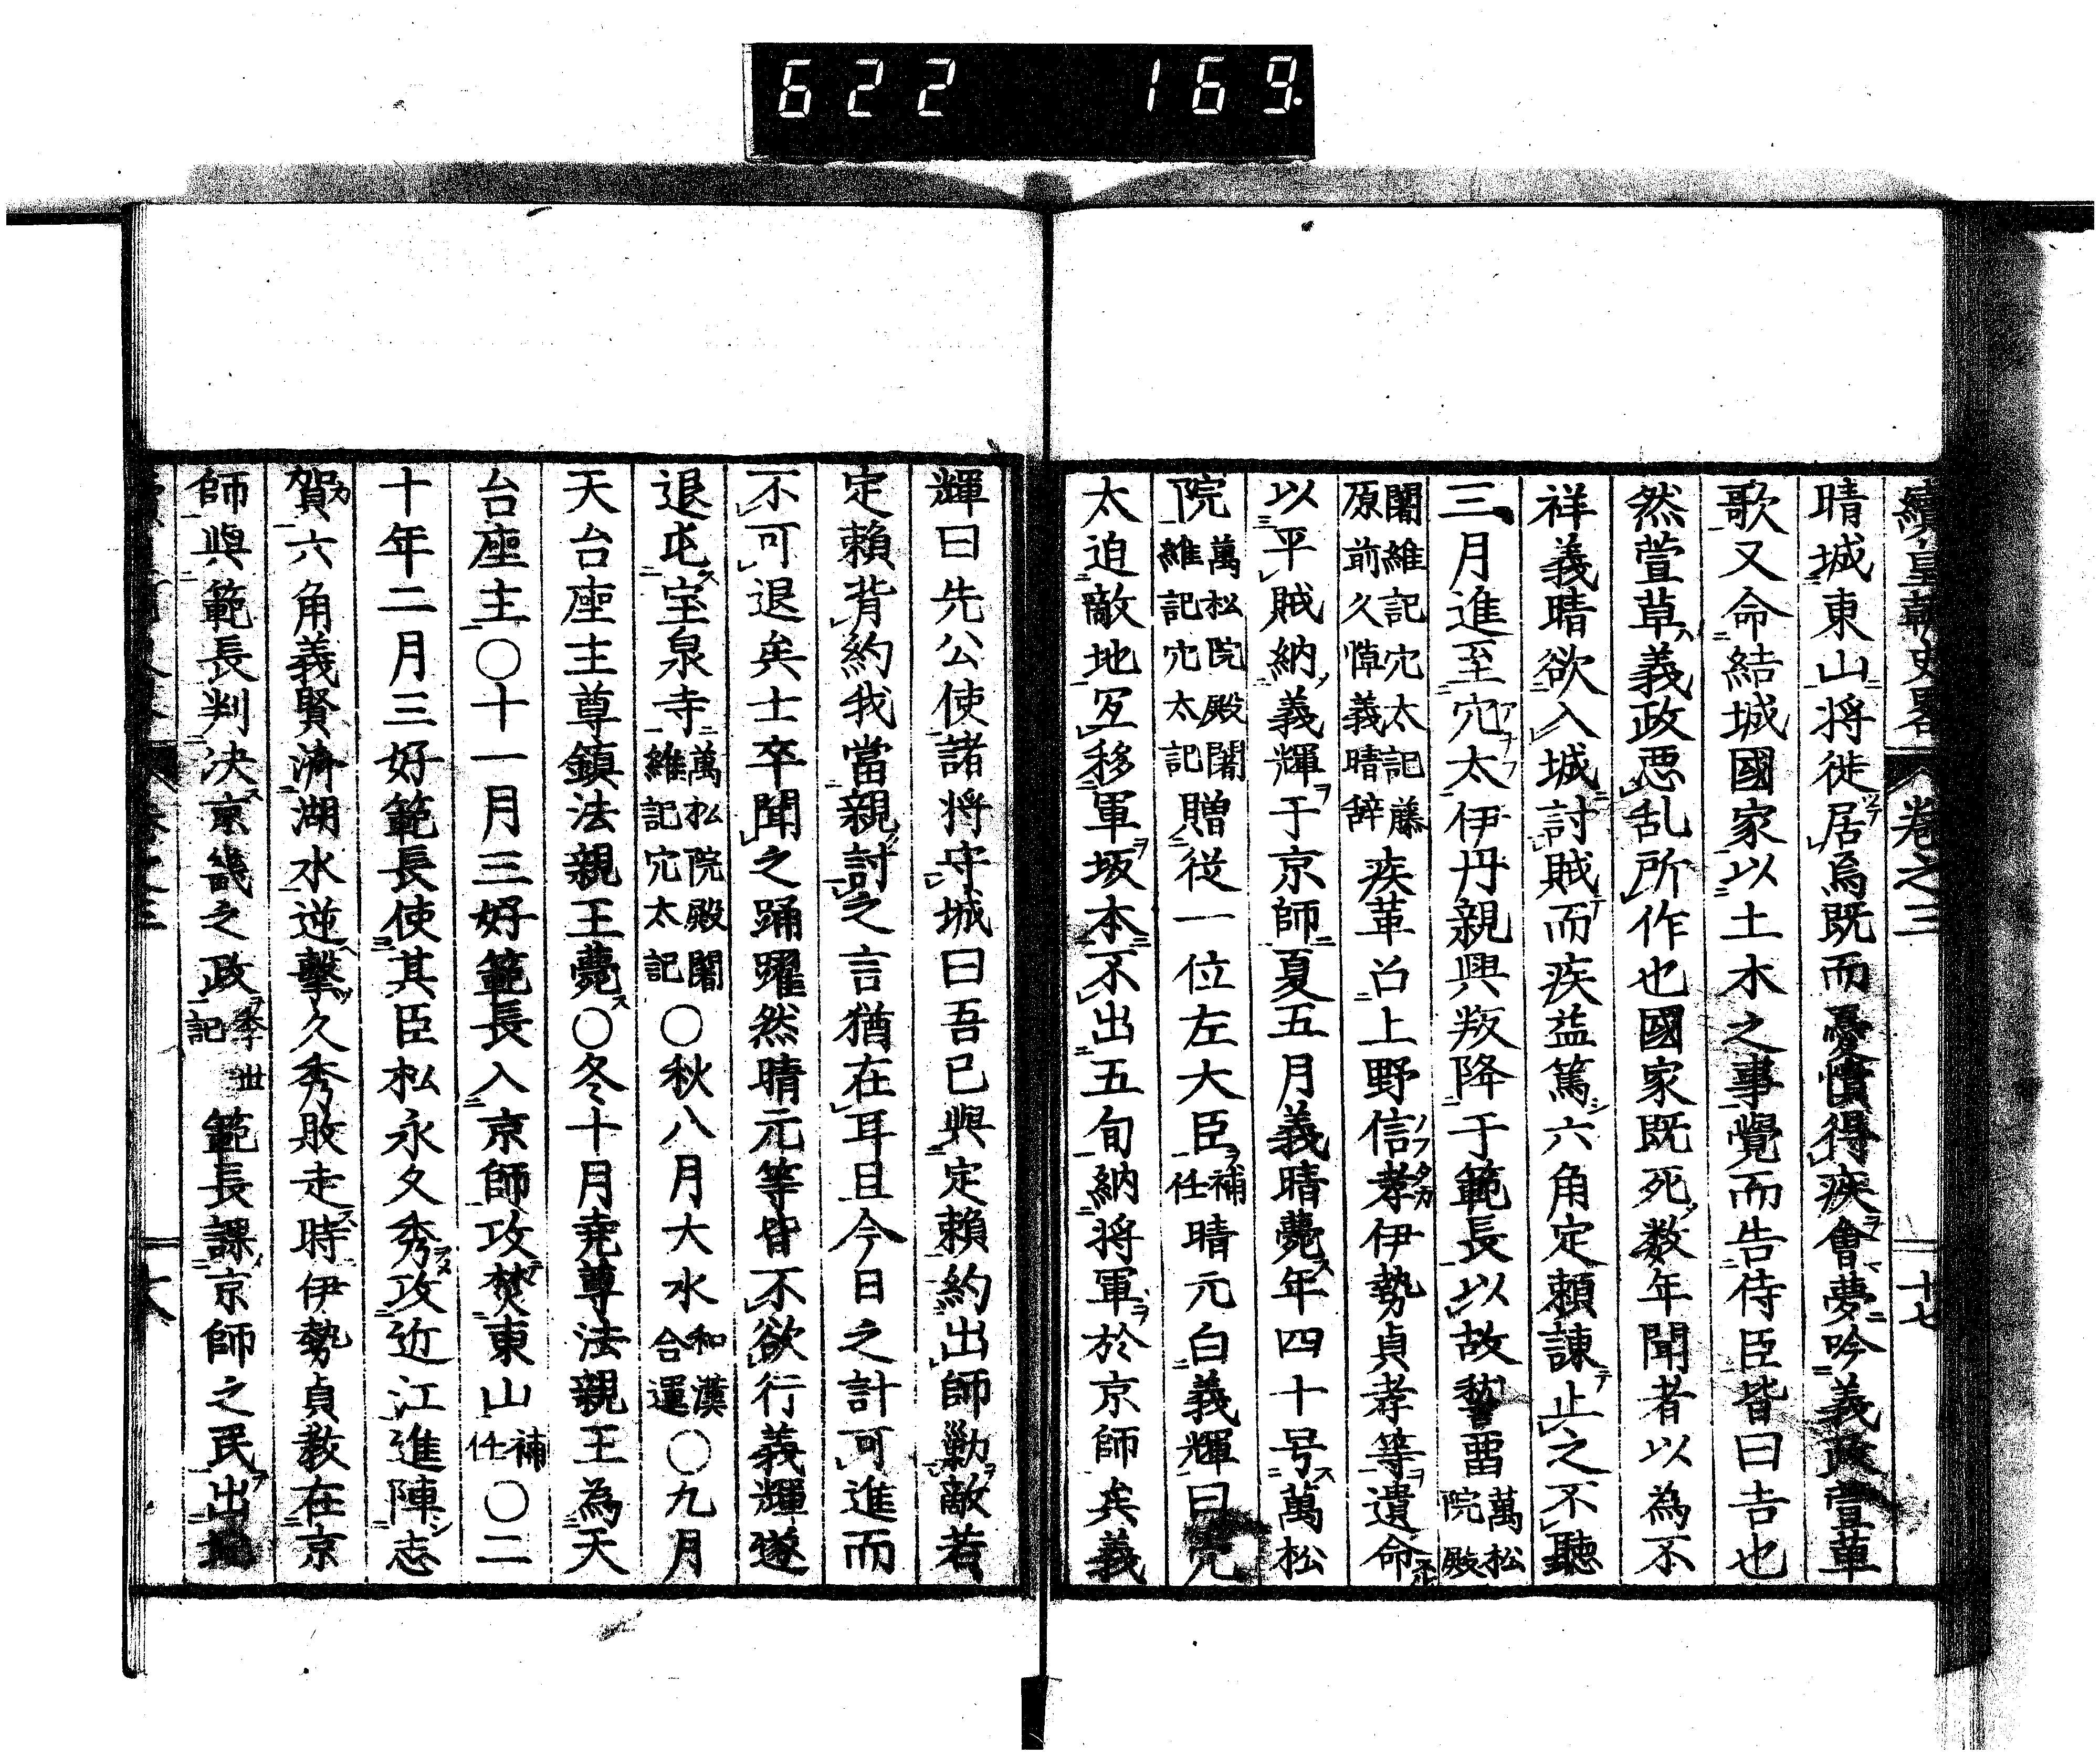 622 169
續皇朝史畧 卷之三 十七
晴城東山将徙居焉既而憂憤得疾會夢吟義政萱草
歌又命結城國家以土木之事覺而告侍臣皆曰吉也
然萱草義政悪乱所作也國家既死数年聞者以為不
祥義晴欲入城討賊而疾益篤六角定頼諌止之不聽
三月進至穴太伊丹親興叛降于範長以故暫畱萬松院殿
闍維記穴太記藤原前久悼義晴辞疾革召上野信孝伊勢貞孝等遺命
以平賊納義輝于京師夏五月義晴薨年四十号萬松
院萬松院殿闍維記穴太記贈従一位左大臣補任晴元白義輝曰
太迫敵地宜移軍坂本不出五旬納将軍於京師矣義
輝曰先公使諸将守城曰吾已與定頼約出師勦敵若
定頼背約我當親討之言猶在耳且今日之計可進而
不可退矣士卒聞之踊躍然晴元等皆不欲行義輝遂
退屯宝泉寺萬松院殿闍維記穴太記〇秋八月大水和漢合運〇九月
天台座主尊鎮法親王薨〇冬十月尭尊法親王為天
台座主〇十一月三好範長入京師攻焚東山補任〇二
十年二月三好範長使其臣松永久秀攻近江進陣志
賀六角義賢済湖水逆擊久秀敗走時伊勢貞教在京
師與範長判决京畿之政季世記範長課京師之民出